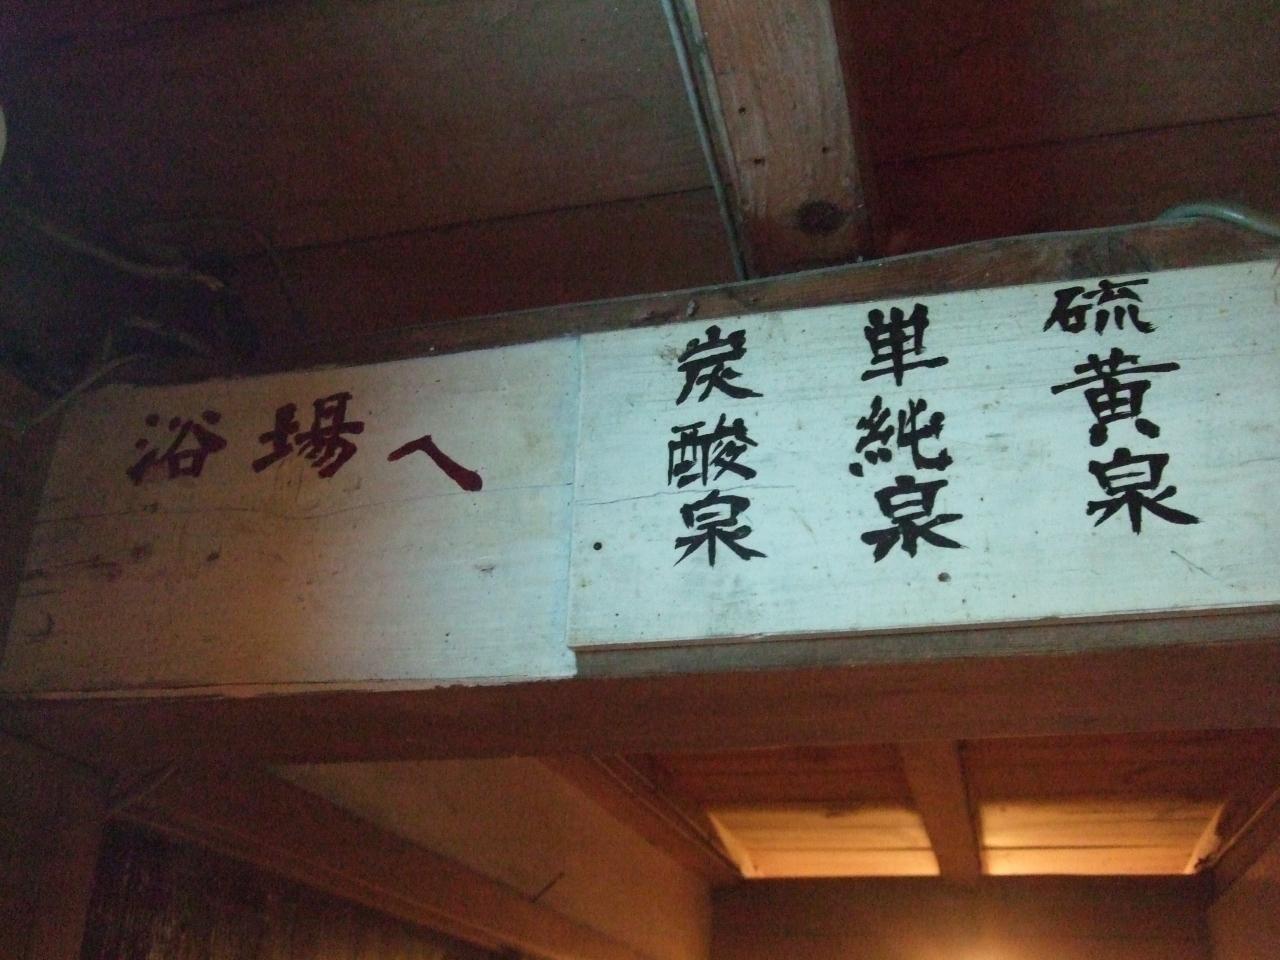 硫黄泉
単純泉
炭酸泉
浴場へ